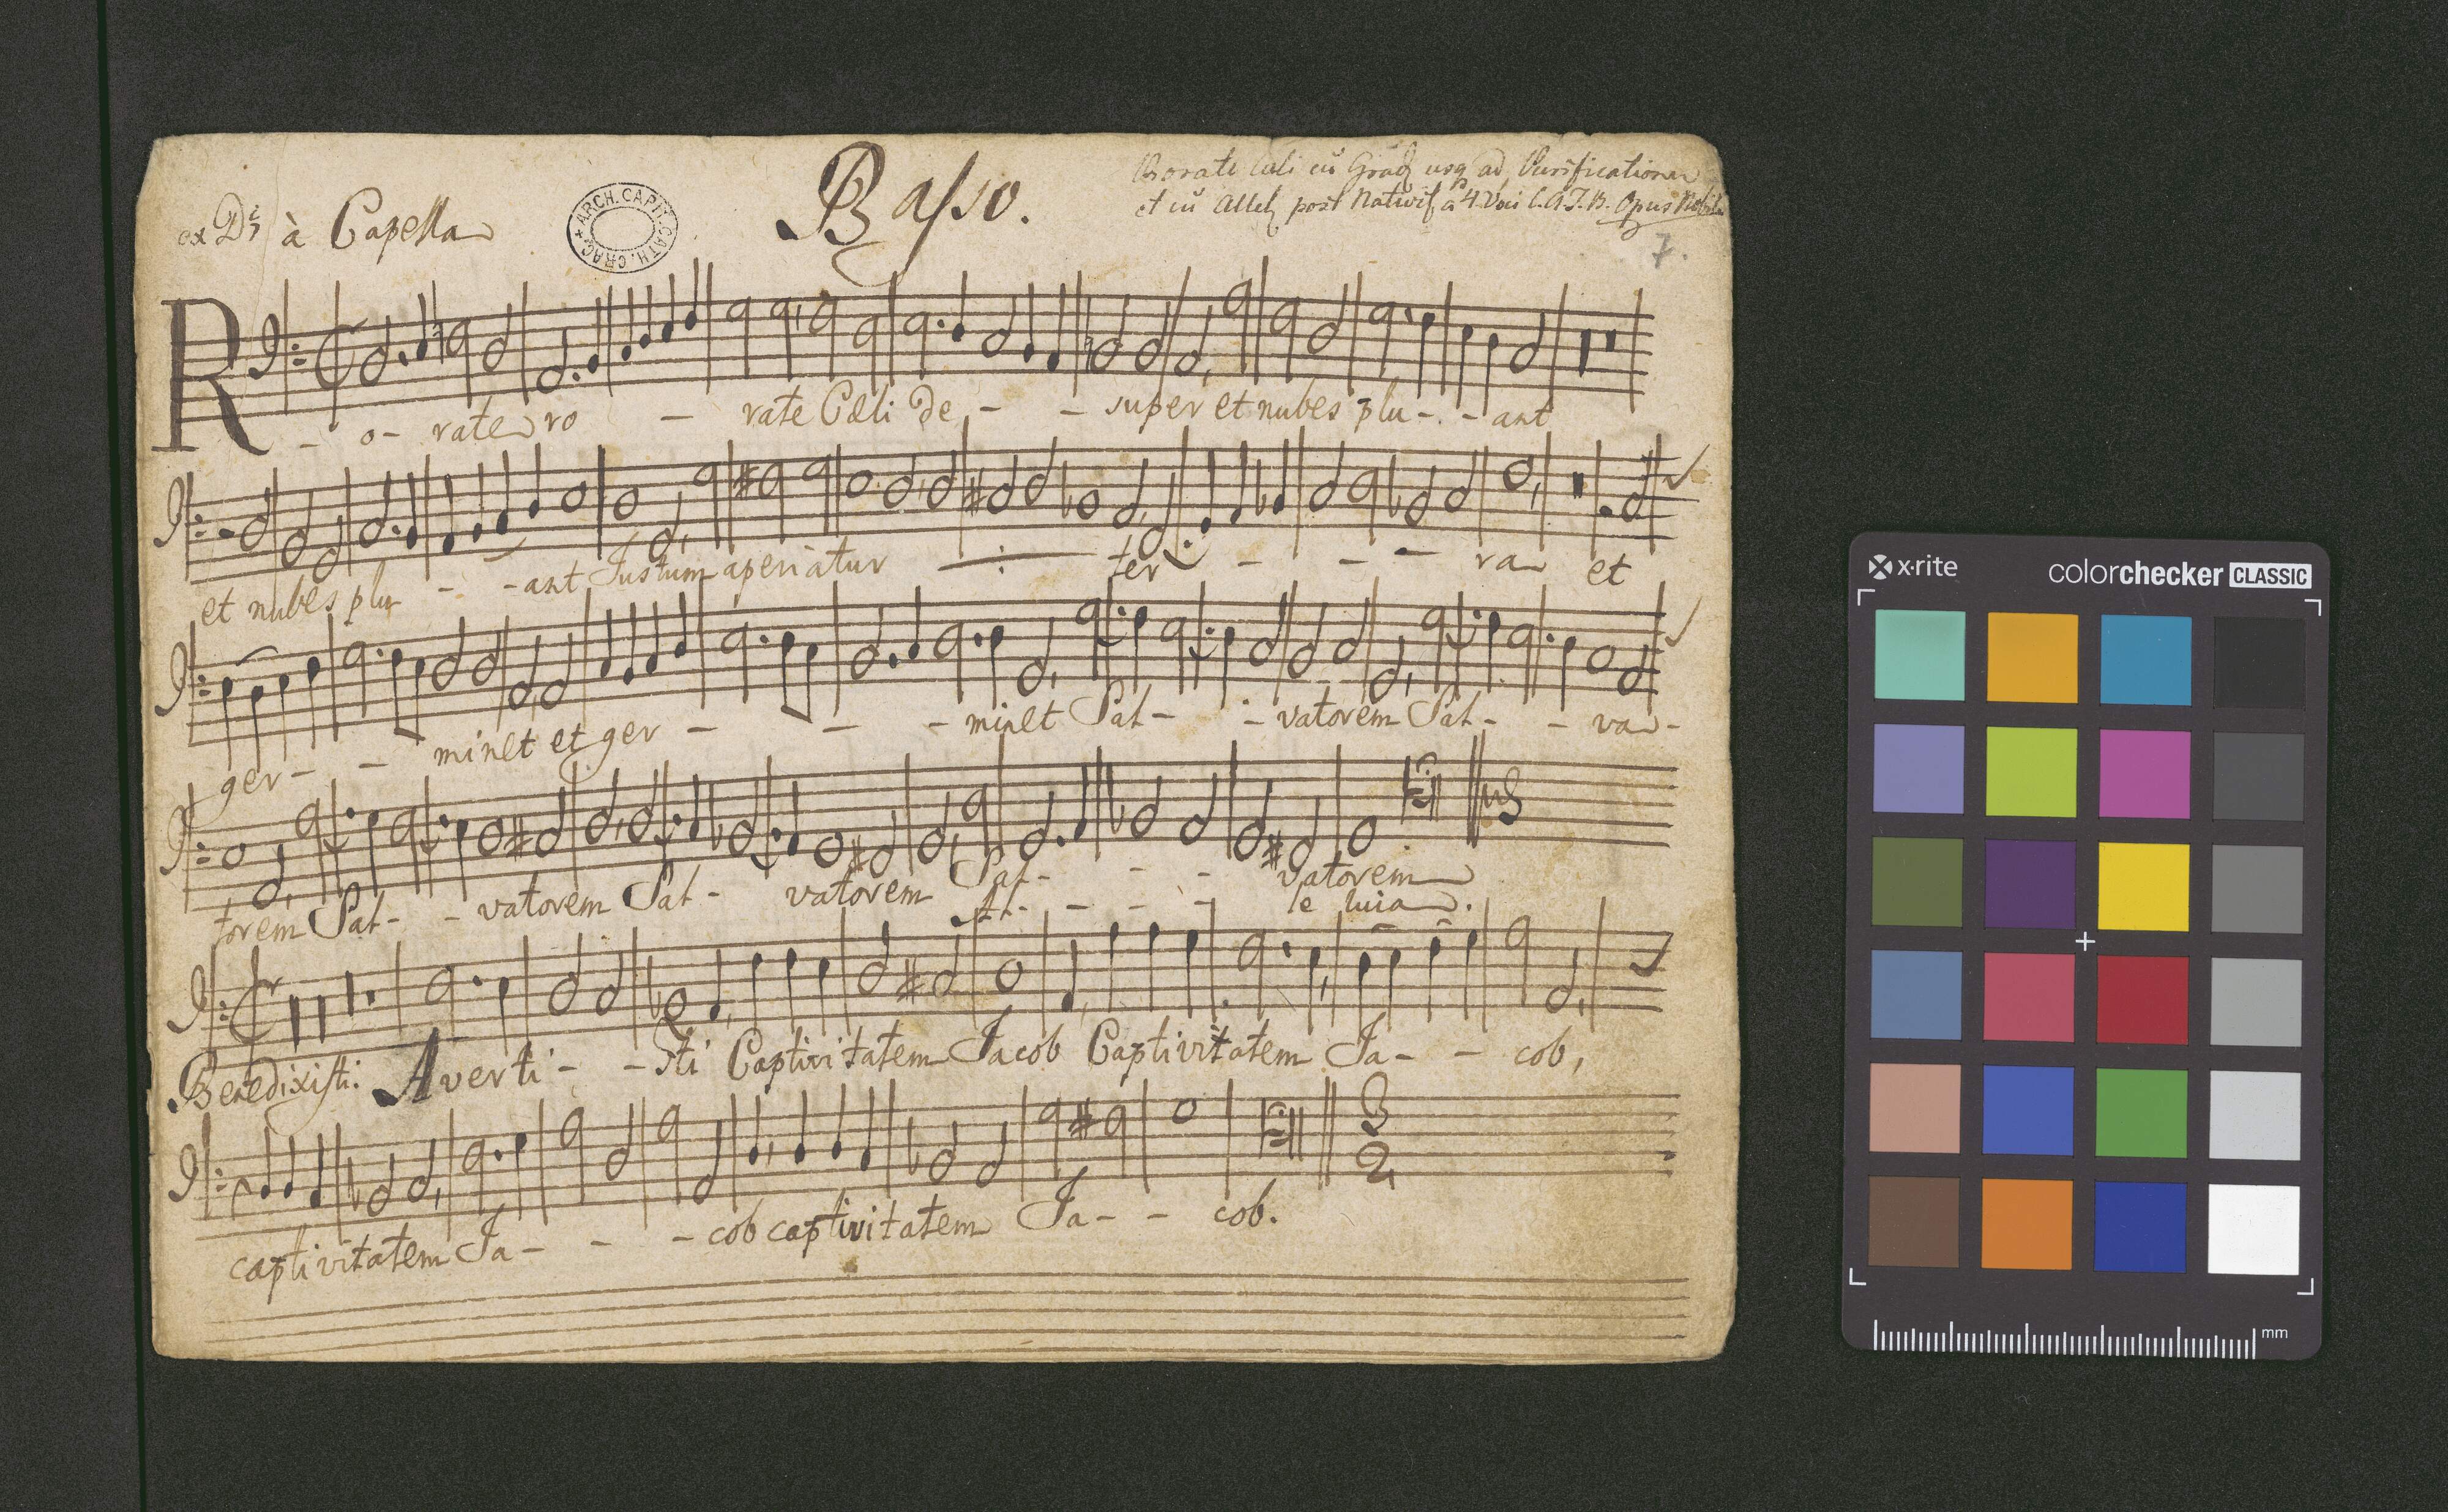 Rorate Cæli cũ Gradʒ usqʒ ad Purificationem
et cũ Allelʒ post Nativit à 4 Voci C.A.T.B. Opus Nobile
ex D à Capella
ARCH. CAPIT. CATH. CRAC.
Basso.
7.
R - o - rate ro - rate Cæli de - - super et nubes plu - - ant
et nubes plu - - ant Justum aperiatur ter - - - ra et
ger - - minet et ger - - - minet Sal - - vatorem Sal - - va -
torem Sal - - vatorem Sal - vatorem Sal - - - vatorem
Al - - - - le luia.
Benedixisti. Averti - - sti Captivitatem Jacob Captivitatem Ja - - cob,
captivitatem Ja - - - cob captivitatem Ja - - cob.
x·rite
colorchecker CLASSIC
mm